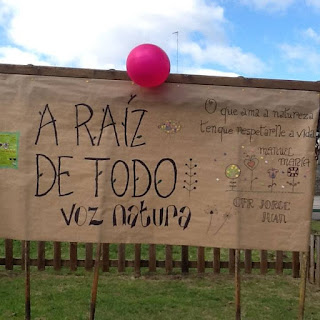 A RAÍZ
DE TODO
voz natura
O que ama a natureza
ten que respetarlle a vida
MANUEL
MARÍA
CPR JORGE
JUAN